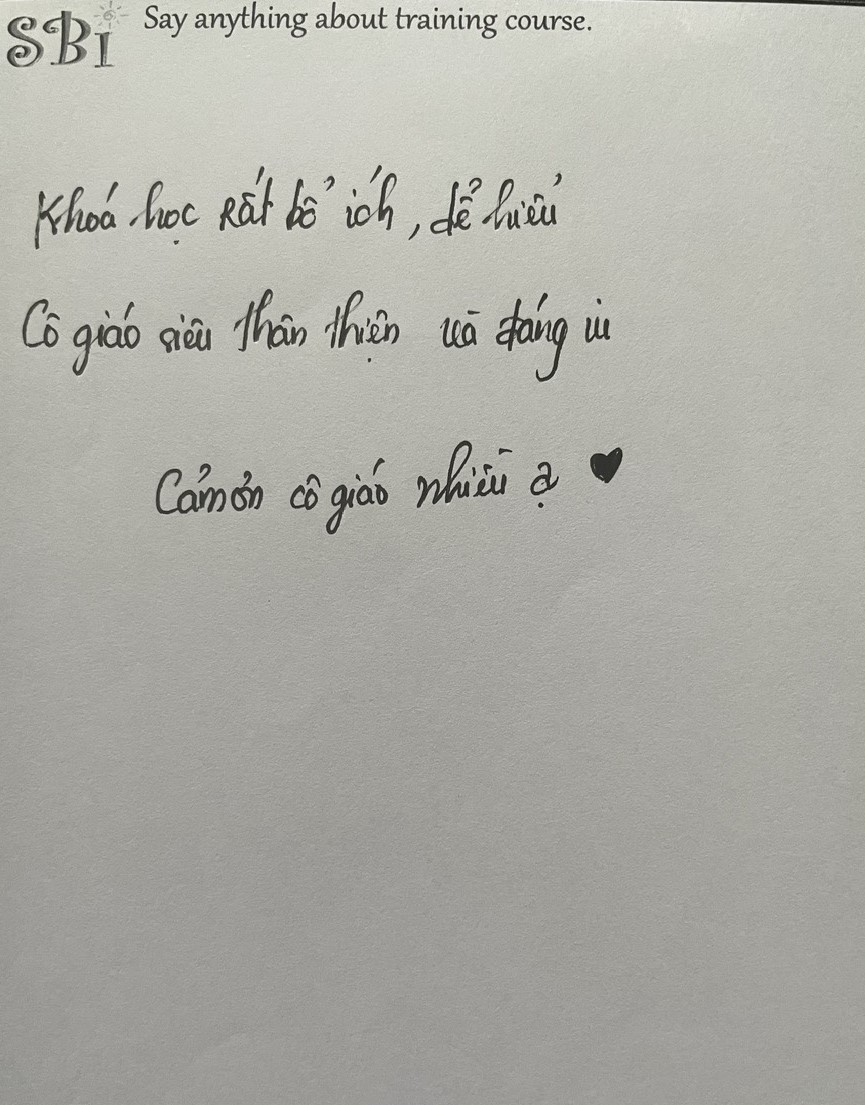 SBI Say anything about training course.
Khoá học Rất bổ ích, dể hiểu
Cô giáo siêu thân thiện và đáng iu
Cảm ơn cô giáo nhiều ạ ♥